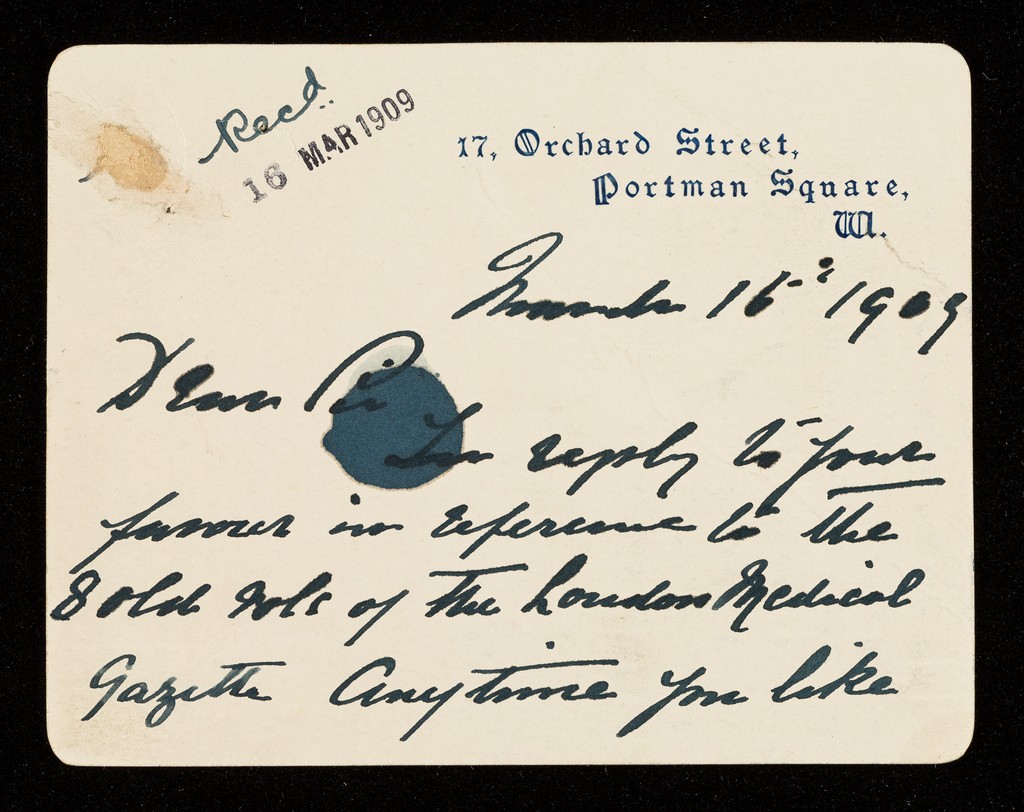 Recd.
16 MAR 1909
17, Orchard Street,
Portman Square,
W.
March 15th 1909
Dear Sir
In reply to your
favour in reference to the
8 old vols of the London Medical
Gazette Anytime you like